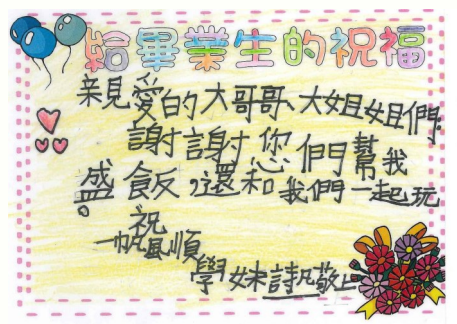 給畢業生的祝福
親愛的大哥哥、大姐姐們:
謝謝您們幫我
盛飯,還和我們一起玩
。
祝
一帆風順
學妹詩凡敬上